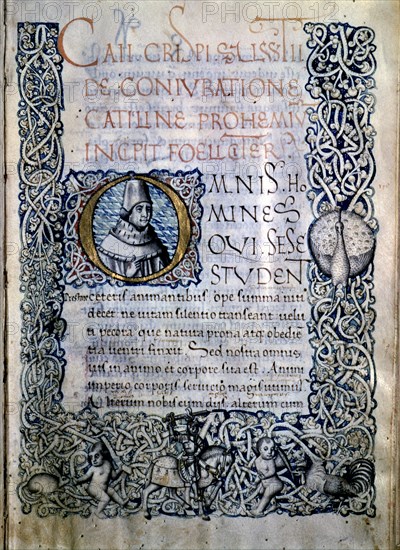 CAII CRISPI SALLVSTII
DE CONIVRATIONE
CATILINE PROHEMIV
INCIPIT FOELICITER
OMNIS HO
MINES
QVI SESE
STVDENT
ceteris animantibus ope summa niti
decet ne vitam silentio transeant velu
ti pecora que natura prona atq obedie
tia ventri finxit Sed nostra omnis
uis in animo et corpore sita est. Animi
imperio corporis seruicio magis utimur.
Alterum nobis cum diis, alterum cum